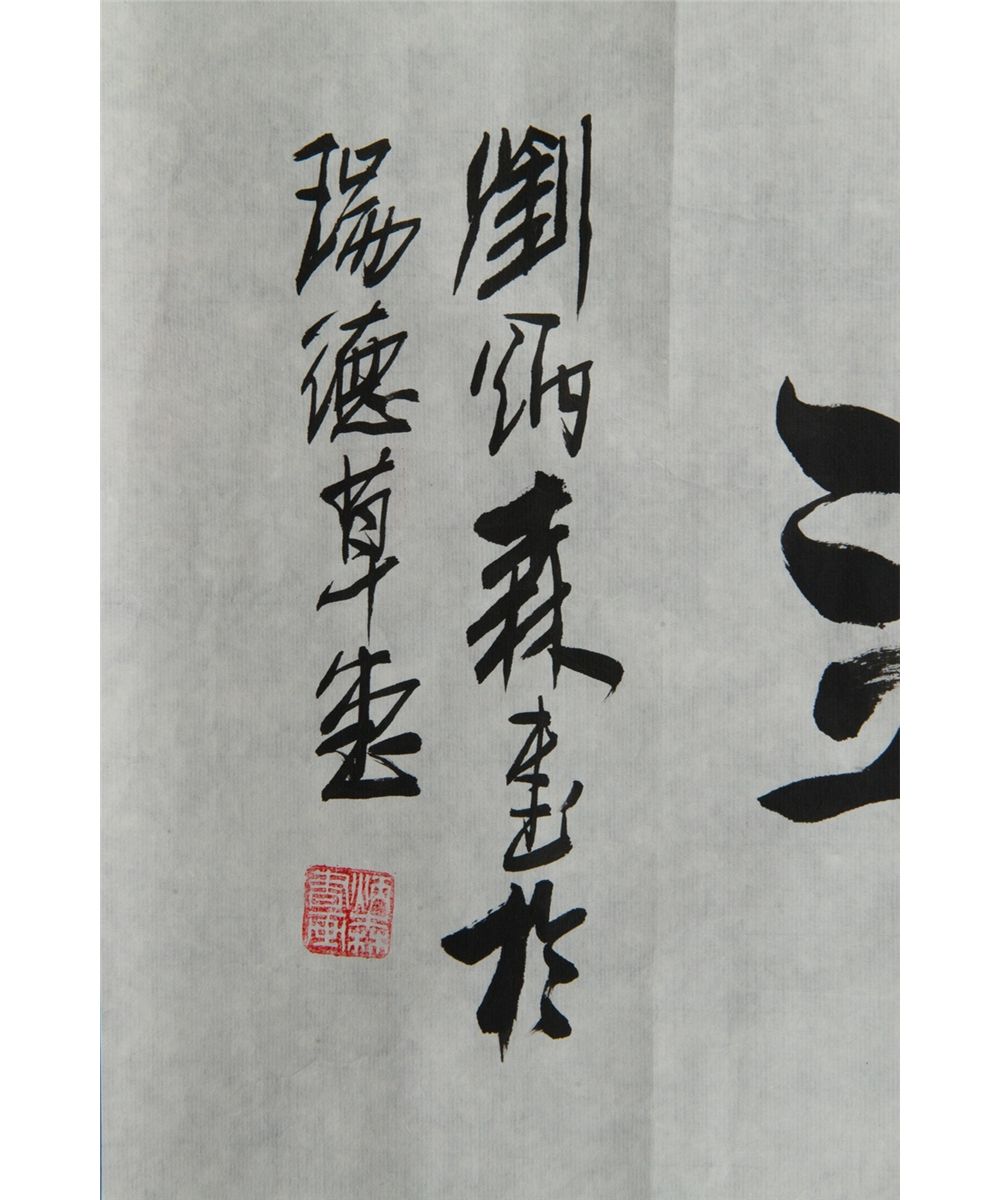 劉炳森書於
瑞德草堂
炳森書画